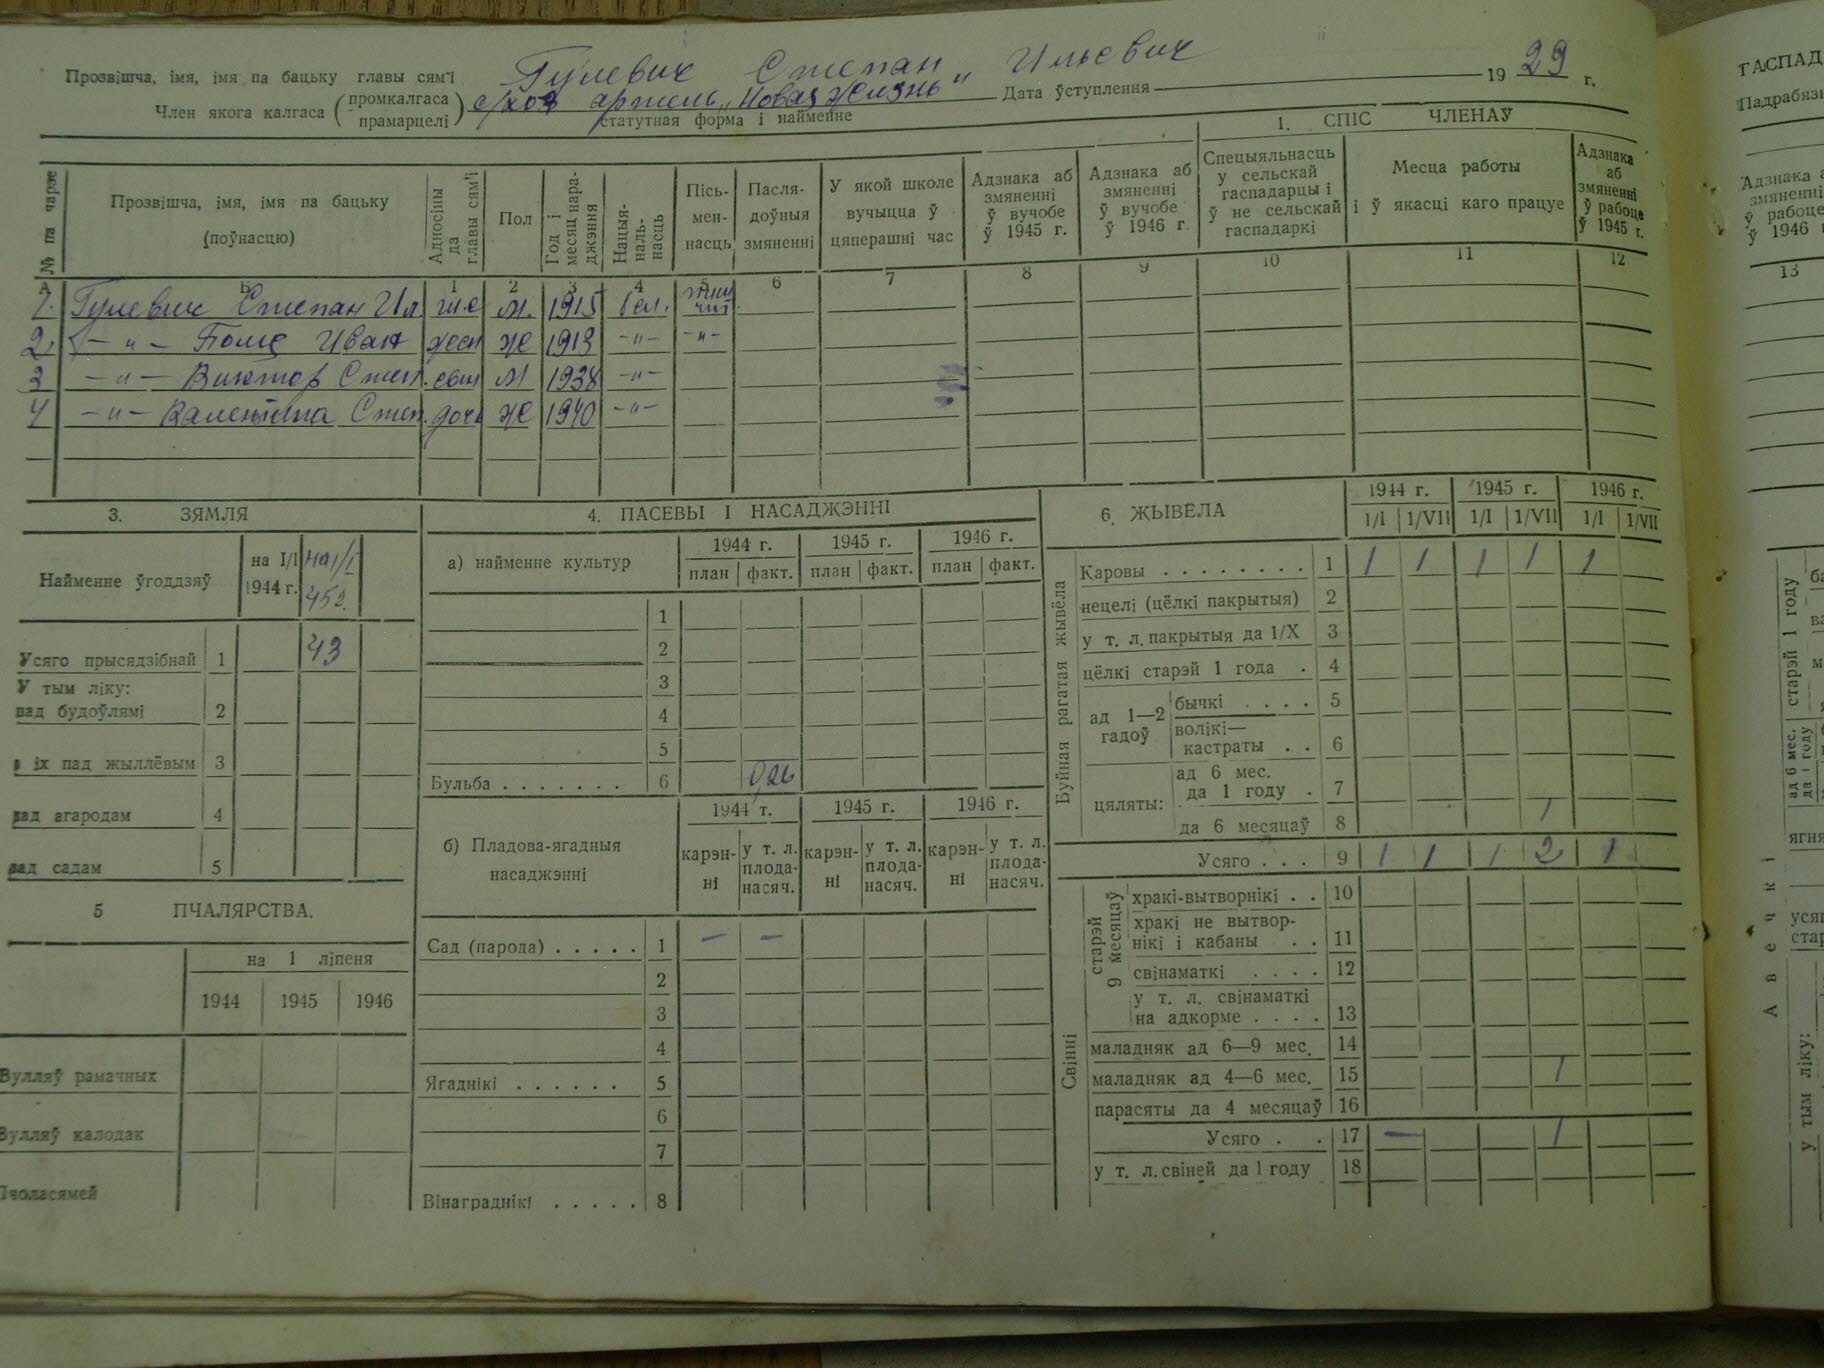 Прозвішча, імя, імя па бацьку главы сям'і Гулевич Степан Ильевич
Член якога калгаса (промкалгаса прамарцелі) с/хоз артель „Новая Жизнь" Дата ўступлення 1929 г.
статутная форма і найменне
1. СПІС ЧЛЕНАЎ
№ па чарзе
Прозвішча, імя, імя па бацьку (поўнасцю)
Адносіны да главы сям'і
Пол
Год і месяц нараджэння
Нацыянальнасць
Пісьменнасць
Паслядоўныя змяненні
У якой школе вучыцца ў цяперашні час
Адзнака аб змяненні ў вучобе ў 1945 г.
Адзнака аб змяненні ў вучобе ў 1946 г.
Спецыяльнасць у сельскай гаспадарцы і ў не сельскай гаспадаркі
Месца работы і ў якасці каго працуе
Адзнака аб змяненні ў рабоце ў 1945 г.
А Б 1 2 3 4 5 6 7 8 9 10 11 12
1. Гулевич Степан Ил М. 1915 бел.
2. -"- Иван Ж 1913 -"- -"-
3 -"- Виктор Степ. М 1938 -"-
4 -"- Валентина Степ. дочь Ж 1940 -"-
3. ЗЯМЛЯ
Найменне ўгоддзяў
на I/I 1944 г. на 1/I 45г.
Усяго прысядзібнай 1 43
У тым ліку:
пад будоўлямі 2
з іх пад жыллёвым 3
пад агародам 4
пад садам 5
5 ПЧАЛЯРСТВА.
на 1 ліпеня
1944 1945 1946
Вулляў рамачных
Вулляў калодак
Пчоласямей
4. ПАСЕВЫ І НАСАДЖЭННІ
а) найменне культур
1944 г. 1945 г. 1946 г.
план факт. план факт. план факт.
1
2
3
4
5
Бульба . . . . . . . 6 0,26
б) Пладова-ягадныя насаджэнні
1944 г. 1945 г. 1946 г.
карэнні у т. л. плоданасяч. карэнні у т. л. плоданасяч. карэнні у т. л. плоданасяч.
Сад (парода) . . . . . 1 — —
2
3
4
Ягаднікі . . . . . . 5
6
7
Вінаграднікі . . . . . 8
6. ЖЫВЁЛА
1944 г. 1945 г. 1946 г.
1/I 1/VII 1/I 1/VII 1/I 1/VII
Буйная рагатая жывёла
Каровы . . . . . . . . 1 1 1 1 1 1
нецелі (цёлкі пакрытыя) 2
у т. л. пакрытыя да 1/X 3
цёлкі старэй 1 года . 4
ад 1—2 гадоў
бычкі . . . . 5
волікі—кастраты . . 6
цяляты:
ад 6 мес. да 1 году . 7
да 6 месяцаў 8 1
Усяго . . . 9 1 1 1 2 1
Свінні
старэй 9 месяцаў
хракі-вытворнікі . . 10
хракі не вытворнікі і кабаны . . 11
свінаматкі . . . . 12
у т. л. свінаматкі на адкорме . . . . 13
маладняк ад 6—9 мес. 14
маладняк ад 4—6 мес. 15 1
парасяты да 4 месяцаў 16
Усяго . . 17 — 1
у т. л. свіней да 1 году 18
ГАСПАД
Адзнака а
змяненні
ў рабоце
ў 1946 г
13
старэй 1 году
ад 6 мес. да 1 году
Авечкі
ягня
усяг
стар
у тым ліку: